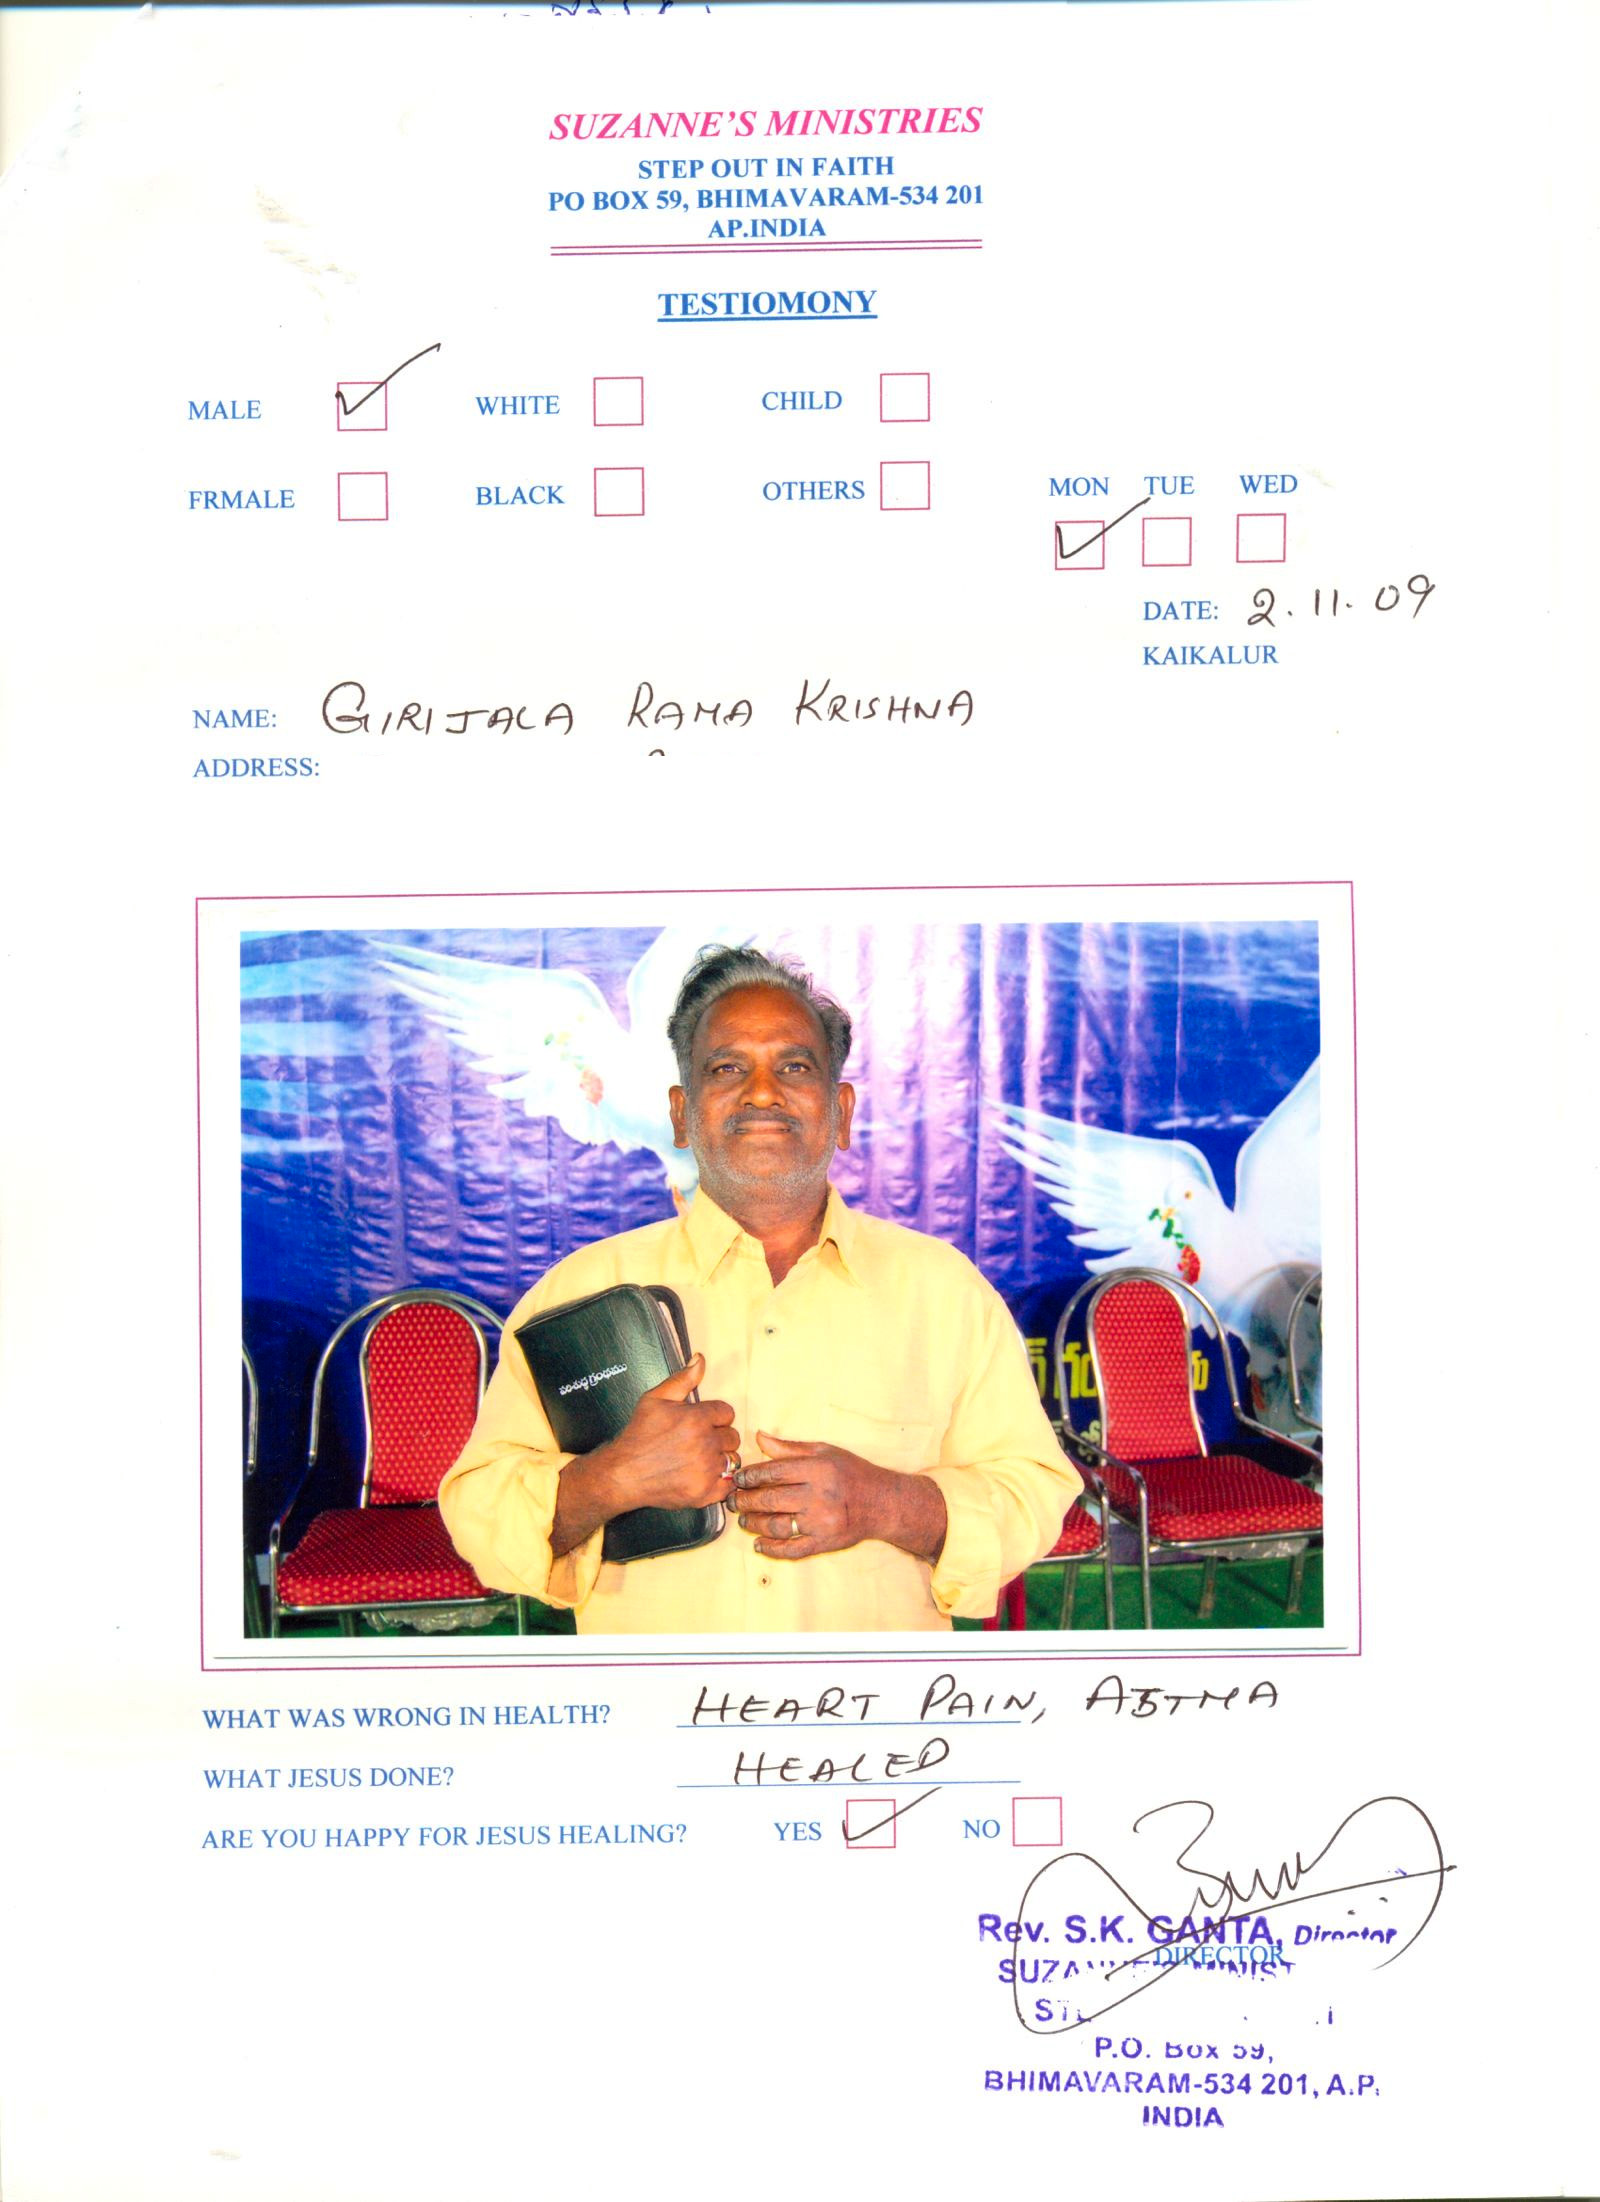 SUZANNE'S MINISTRIES
STEP OUT IN FAITH
PO BOX 59, BHIMAVARAM-534 201
AP.INDIA
TESTIOMONY
MALE WHITE CHILD
FRMALE BLACK OTHERS
MON TUE WED
DATE: 2.11.09
KAIKALUR
NAME: GIRIJALA RAMA KRISHNA
ADDRESS:
పరిశుద్ధ గ్రంథము
WHAT WAS WRONG IN HEALTH? HEART PAIN, ASTMA
WHAT JESUS DONE? HEALED
ARE YOU HAPPY FOR JESUS HEALING? YES NO
Rev. S.K. GANTA, Director
DIRECTOR
P.O. Box 59,
BHIMAVARAM-534 201, A.P.
INDIA